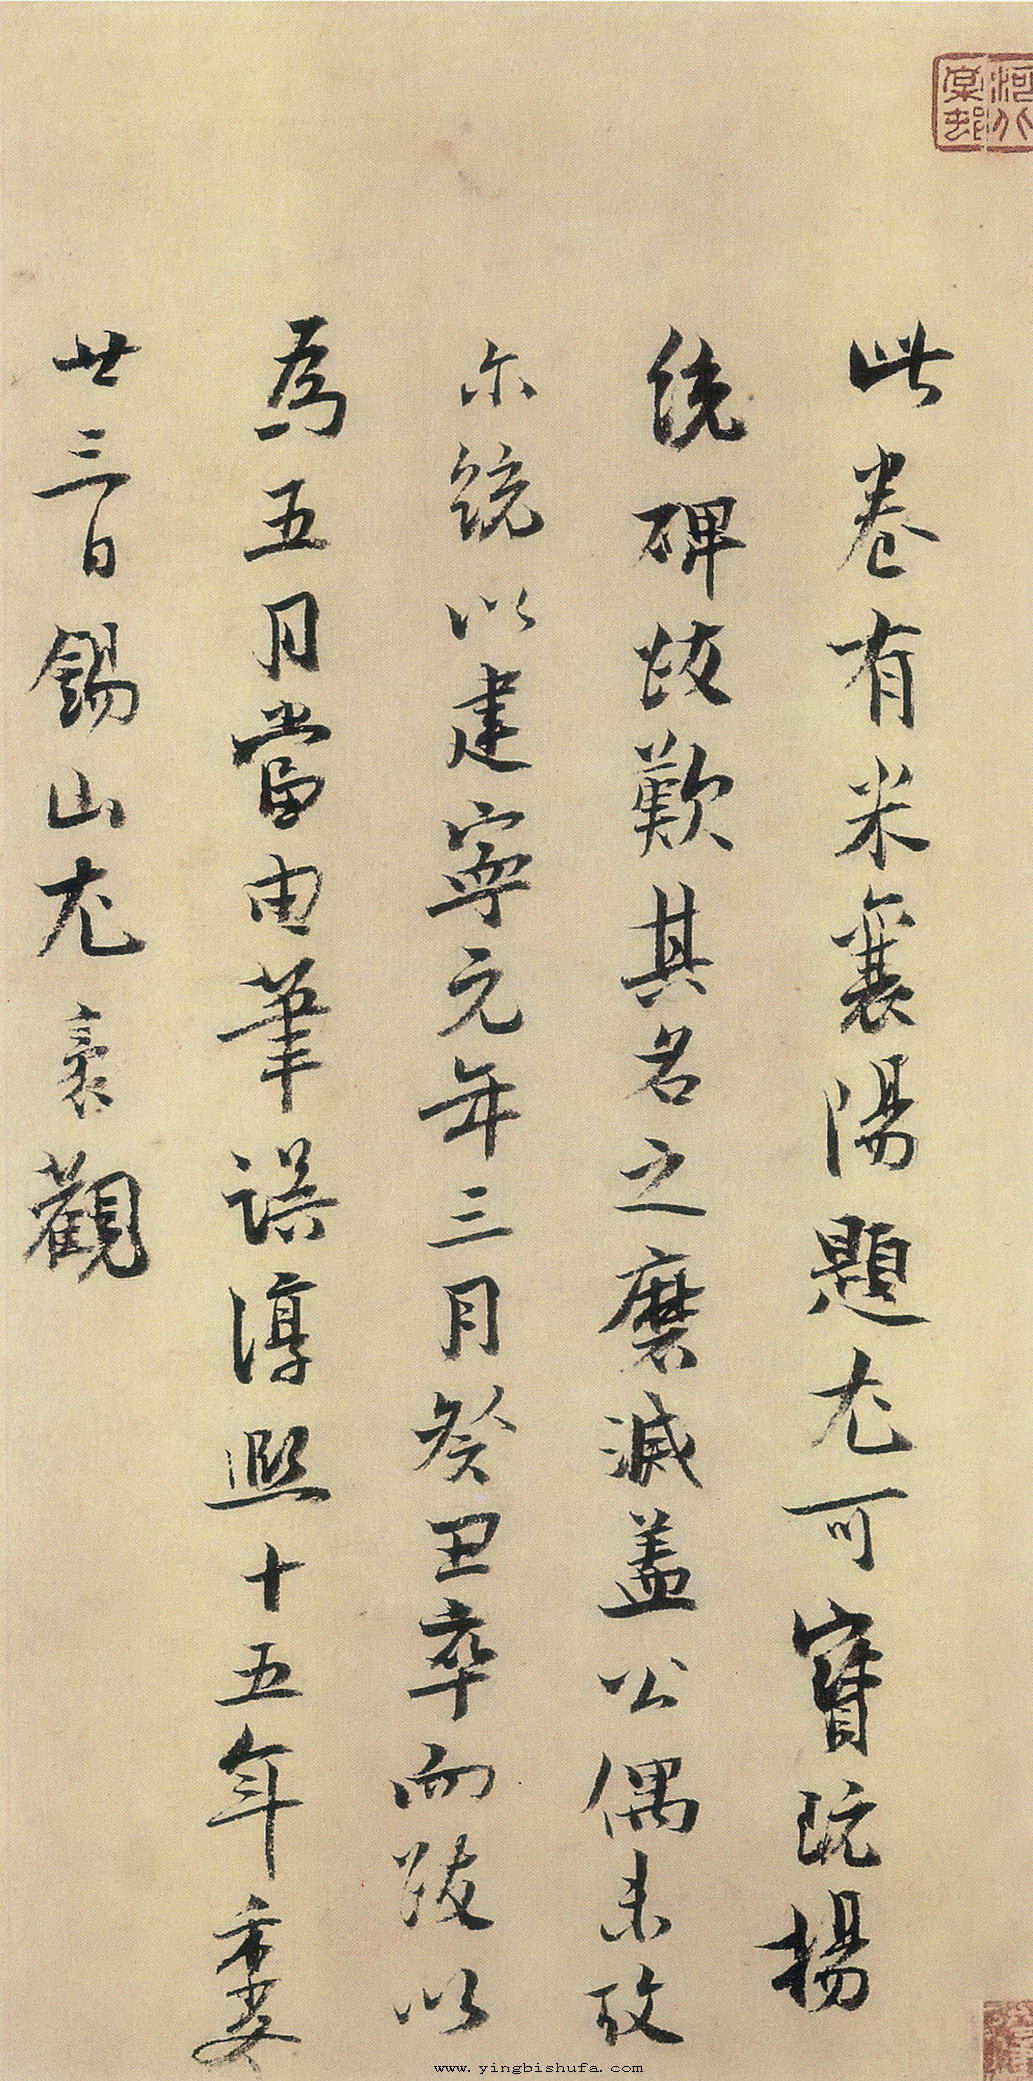 此卷有米襄陽題尤可寶玩揚
统碑跋歎其名之磨滅盖公偶未攷
尓統以建寧元年三月癸丑卒而跋以
為五月當由筆誤淳熙十五年季夏
廿三日錫山尤袤觀
www.yingbishufa.com